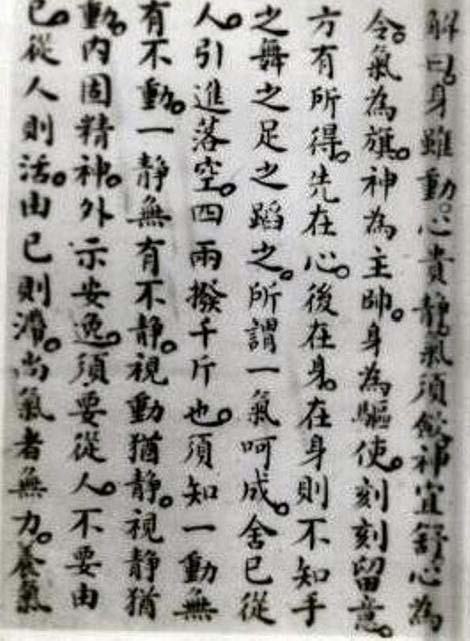 解曰。身雖動。心貴靜。氣須斂。神宜舒。心為
令。氣為旗。神為主帥。身為驅使。刻刻留意。
方有所得。先在心。後在身。在身則不知手
之舞之足之蹈之。所謂一氣呵成。舍己從
人。引進落空。四兩撥千斤也。須知一動無
有不動。一靜無有不靜。視動猶靜。視靜猶
動。內固精神。外示安逸。須要從人。不要由
己。從人則活。由己則滯。尚氣者無力。養氣